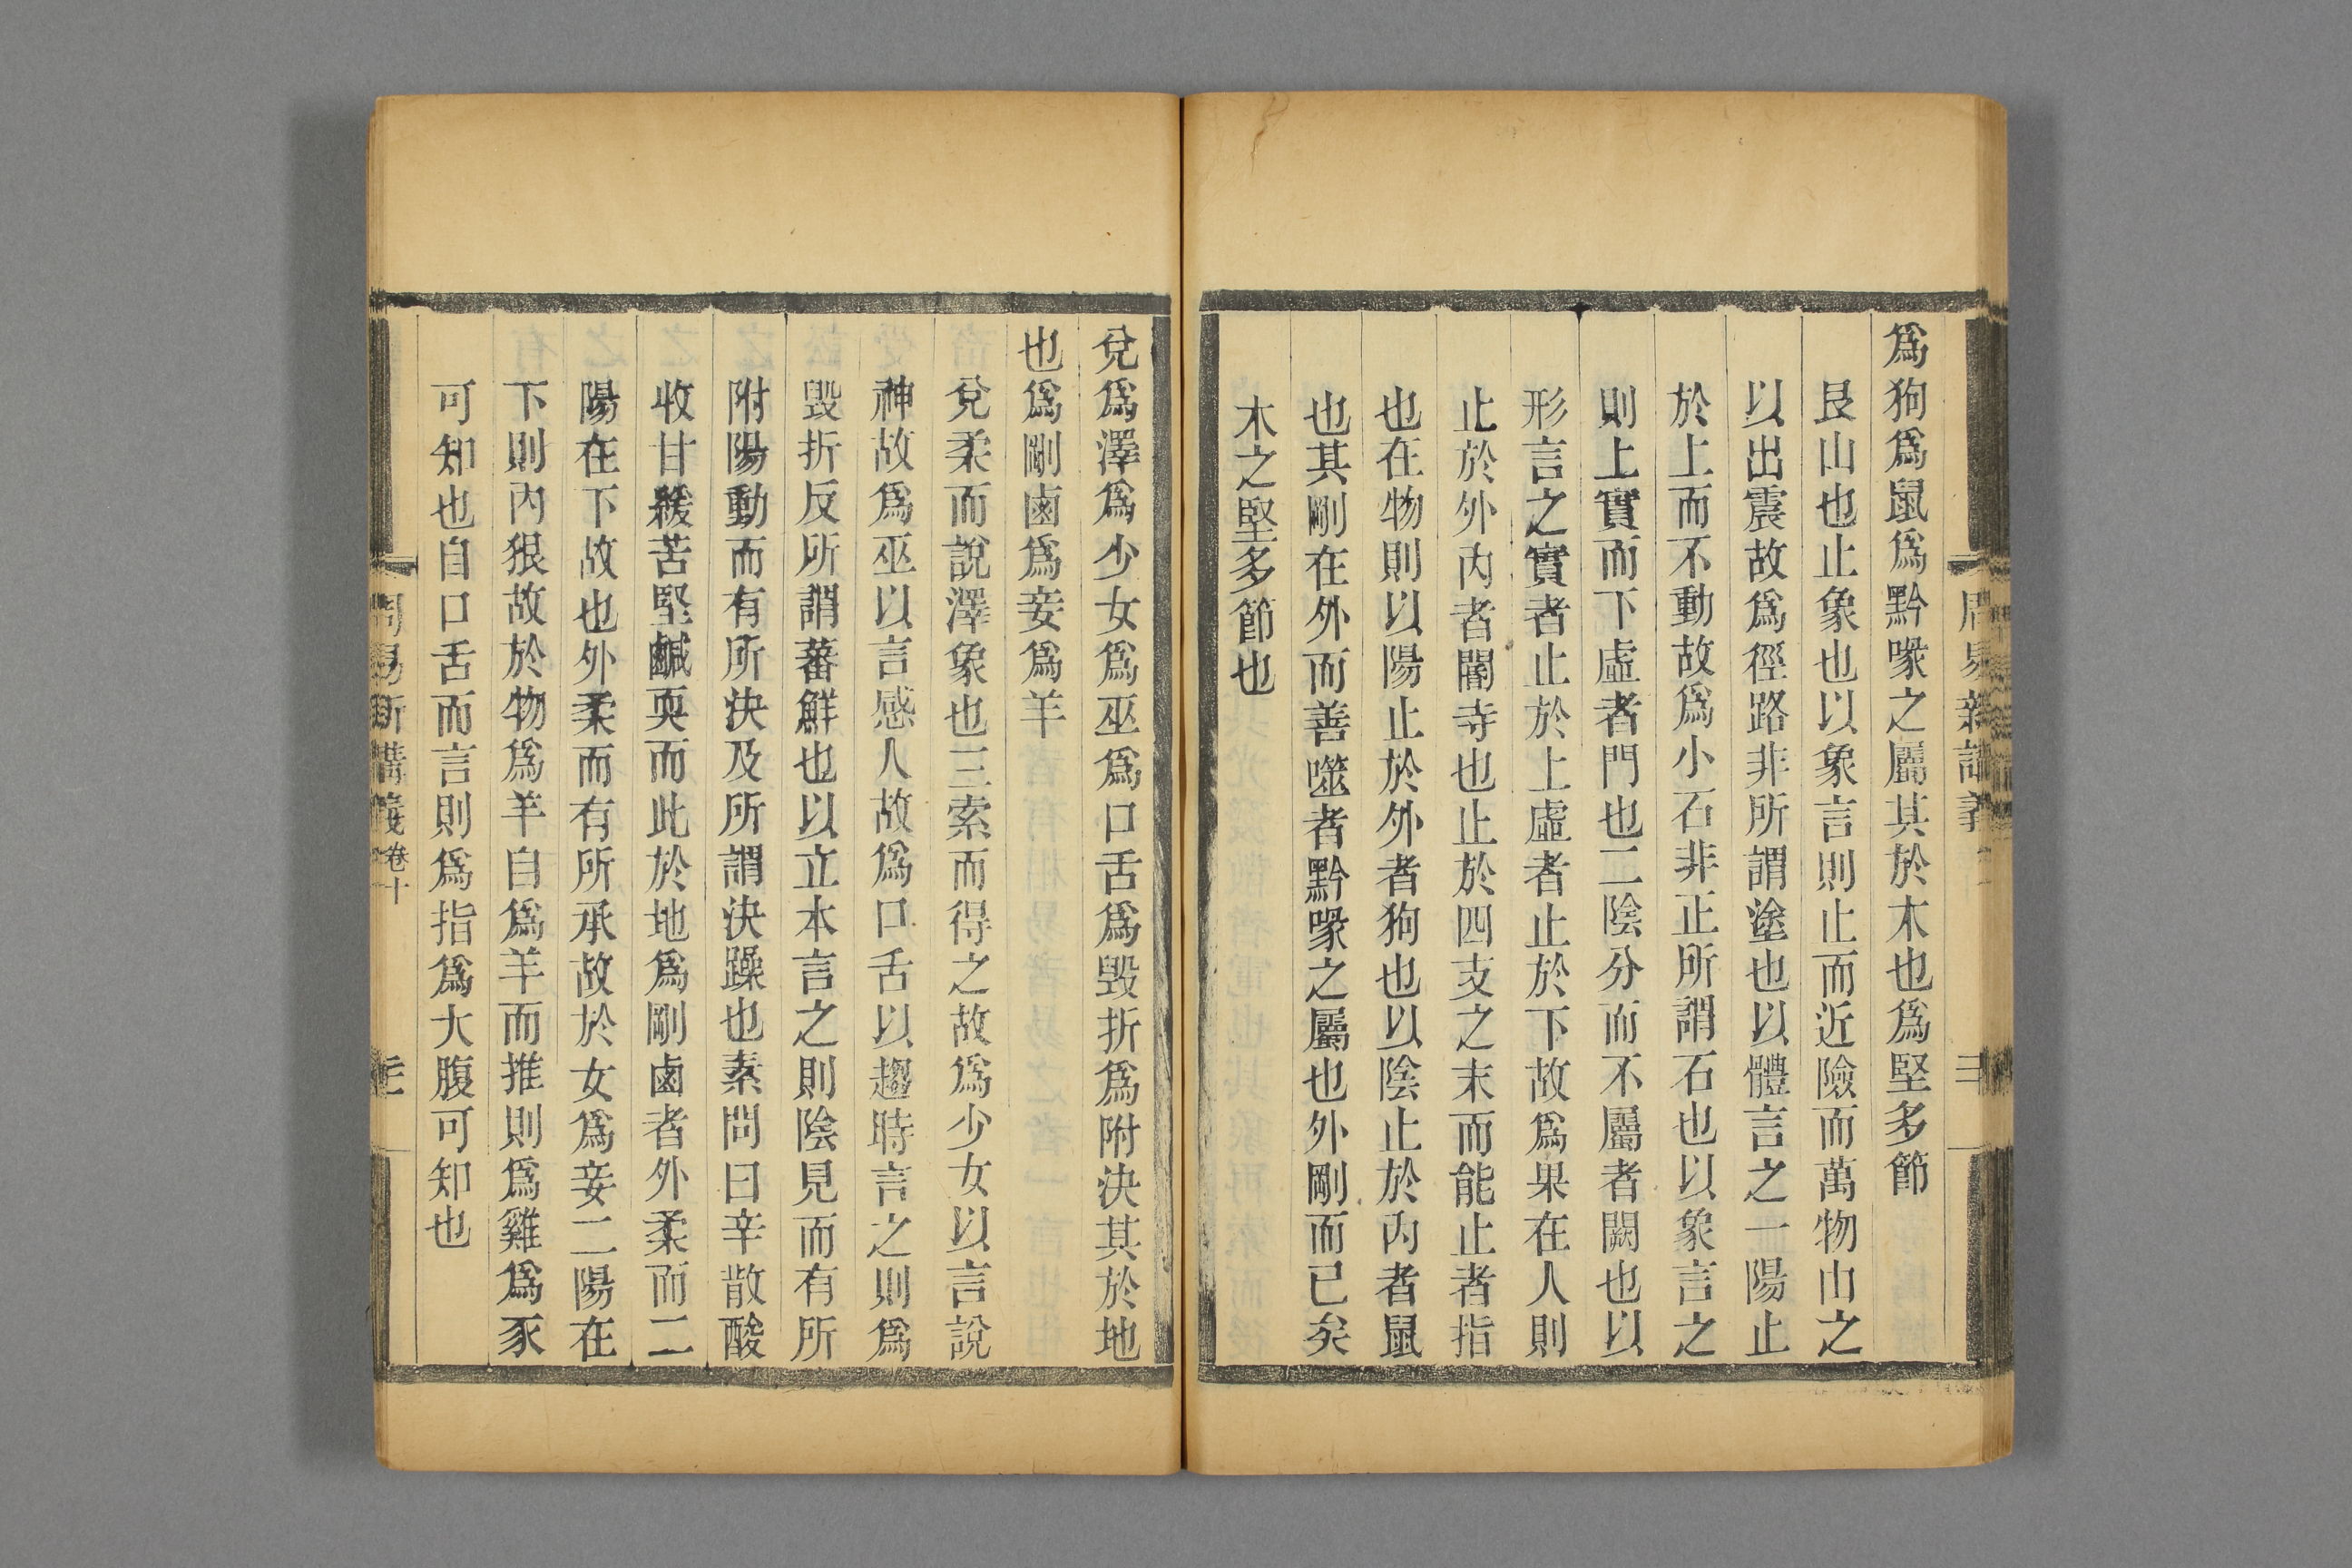 爲狗爲鼠爲黔喙之屬其於木也爲堅多節
艮山也止象也以象言則止而近險而萬物山之
以出震故爲徑路非所謂塗也以體言之一陽止
於上而不動故爲小石非正所謂石也以象言之
則上實而下虛者門也二陰分而不屬者闕也以
形言之實者止於上虛者止於下故爲果在人則
止於外內者閽寺也止於四支之末而能止者指
也在物則以陽止於外者狗也以陰止於內者鼠
也其剛在外而善噬者黔喙之屬也外剛而已矣
木之堅多節也
兌爲澤爲少女爲巫爲口舌爲毀折爲附決其於地
也爲剛鹵爲妾爲羊
兌柔而說澤象也三索而得之故爲少女以言說
神故爲巫以言感人故爲口舌以趨時言之則爲
毀折反所謂蕃鮮也以立本言之則陰見而有所
附陽動而有所決及所謂決躁也素問曰辛散酸
收甘緩苦堅鹹耎而此於地爲剛鹵者外柔而二
陽在下故也外柔而有所承故於女爲妾二陽在
下則內狠故於物爲羊自爲羊而推則爲雞爲豕
可知也自口舌而言則爲指爲大腹可知也
周易新講義 卷十